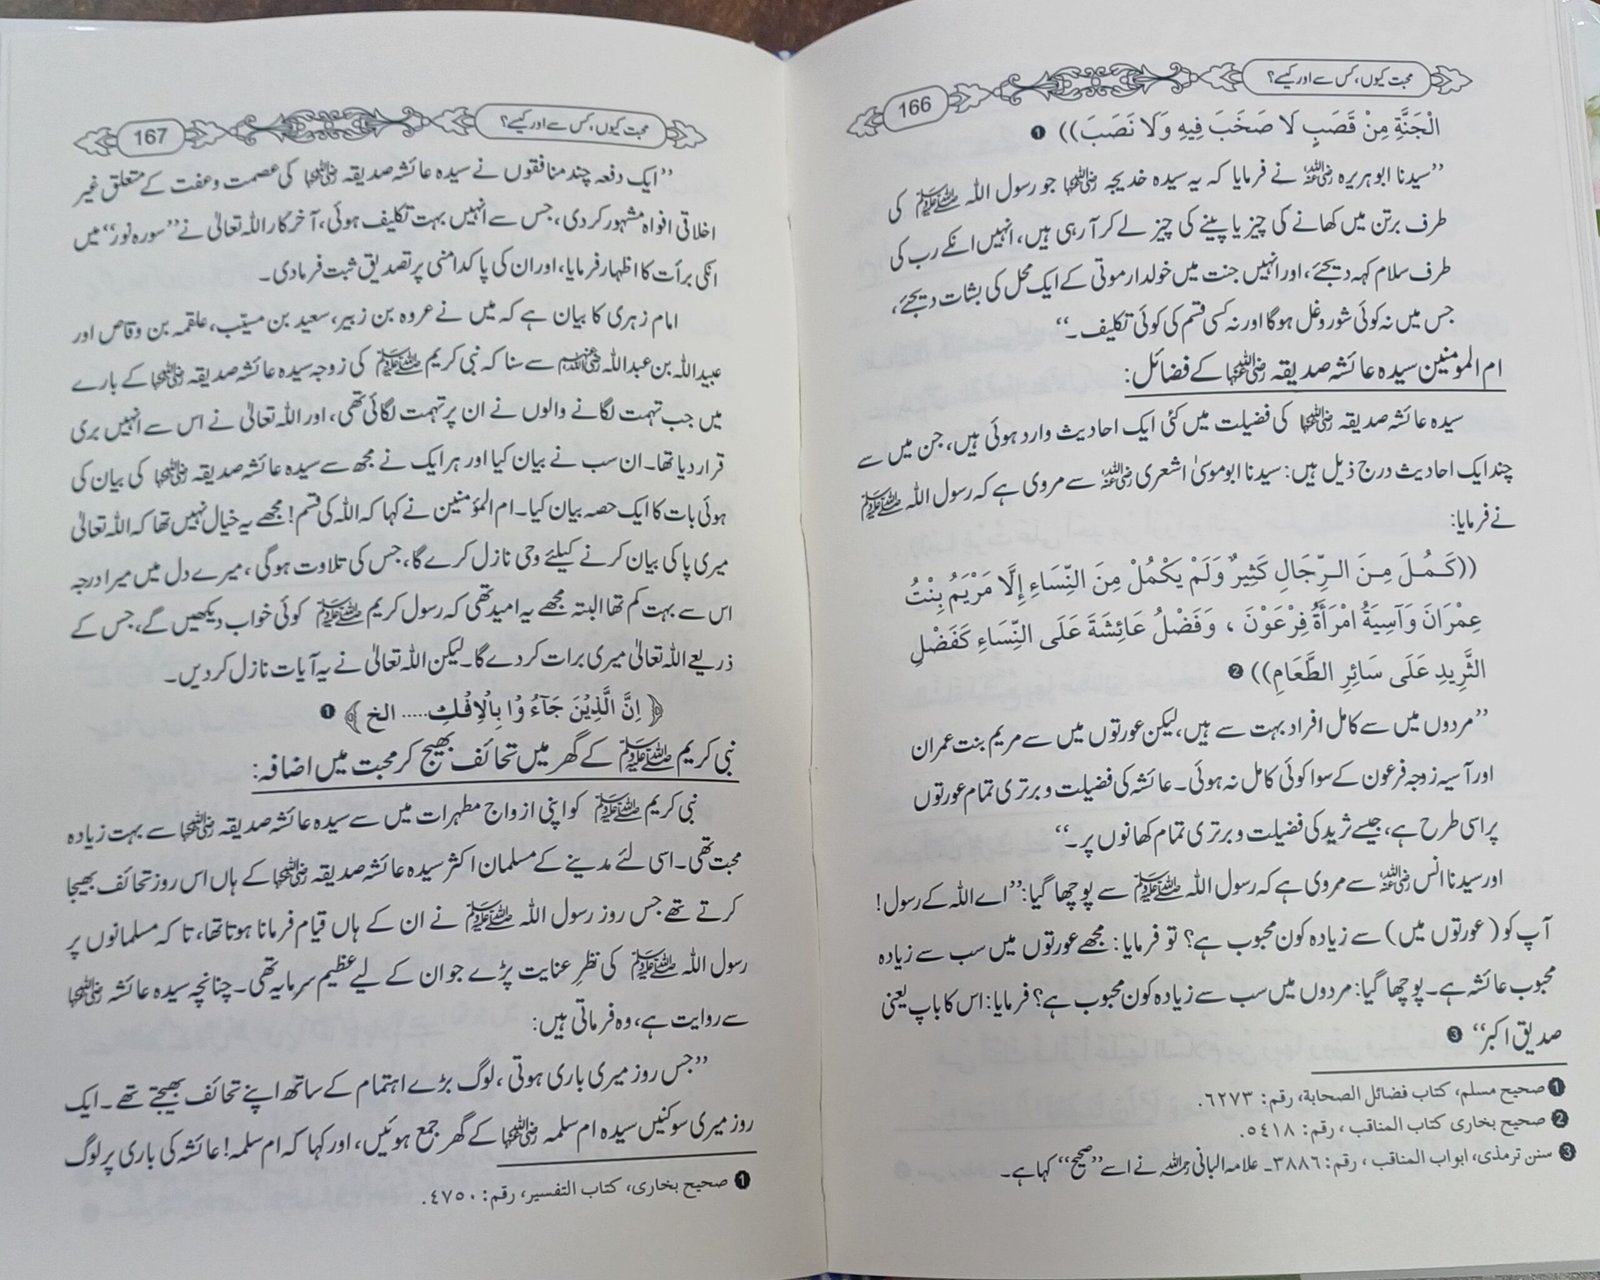 166
محبت کیوں، کس سے اور کیسے؟
الْجَنَّةِ مِنْ قَصَبٍ لَا صَخَبَ فِيهِ وَلَا نَصَبَ)) ❶
’’سیدنا ابو ہریرہ رضی اللہ عنہ نے فرمایا کہ یہ سیدہ خدیجہ رضی اللہ عنہا جو رسول اللہ ﷺ کی
طرف برتن میں کھانے کی چیز یا پینے کی چیز لے کر آ رہی ہیں، انہیں انکے رب کی
طرف سلام کہہ دیجئے، اور انہیں جنت میں خولدار موتی کے ایک محل کی بشات دیجئے،
جس میں نہ کوئی شور و غل ہوگا اور نہ کسی قسم کی کوئی تکلیف۔‘‘
ام المومنین سیدہ عائشہ صدیقہ رضی اللہ عنہا کے فضائل:
سیدہ عائشہ صدیقہ رضی اللہ عنہا کی فضیلت میں کئی ایک احادیث وارد ہوئی ہیں، جن میں سے
چند ایک احادیث درج ذیل ہیں: سیدنا ابوموسیٰ اشعری رضی اللہ عنہ سے مروی ہے کہ رسول اللہ ﷺ
نے فرمایا:
((كَمُلَ مِنَ الرِّجَالِ كَثِيرٌ وَلَمْ يَكْمُلْ مِنَ النِّسَاءِ إِلَّا مَرْيَمُ بِنْتُ
عِمْرَانَ وَآسِيَةُ امْرَأَةُ فِرْعَوْنَ ، وَفَضْلُ عَائِشَةَ عَلَى النِّسَاءِ كَفَضْلِ
الثَّرِيدِ عَلَى سَائِرِ الطَّعَامِ)) ❷
’’مردوں میں سے کامل افراد بہت سے ہیں، لیکن عورتوں میں سے مریم بنت عمران
اور آسیہ زوجہ فرعون کے سوا کوئی کامل نہ ہوئی۔ عائشہ کی فضیلت و برتری تمام عورتوں
پر اسی طرح ہے، جیسے ثرید کی فضیلت و برتری تمام کھانوں پر۔‘‘
اور سیدنا انس رضی اللہ عنہ سے مروی ہے کہ رسول اللہ ﷺ سے پوچھا گیا: ’’اے اللہ کے رسول!
آپ کو (عورتوں میں) سے زیادہ کون محبوب ہے؟ تو فرمایا: مجھے عورتوں میں سب سے زیادہ
محبوب عائشہ ہے۔ پوچھا گیا: مردوں میں سب سے زیادہ کون محبوب ہے؟ فرمایا: اس کا باپ یعنی
صدیق اکبر‘‘ ❸
❶ صحیح مسلم، کتاب فضائل الصحابة، رقم: ٦٢٧٣.
❷ صحیح بخاری کتاب المناقب، رقم: ٥٤١٨.
❸ سنن ترمذی، ابواب المناقب، رقم: ٣٨٨٦۔ علامہ البانی رحمہ اللہ نے اسے ’’صحیح‘‘ کہا ہے۔
167
محبت کیوں، کس سے اور کیسے؟
’’ایک دفعہ چند منافقوں نے سیدہ عائشہ صدیقہ رضی اللہ عنہا کی عصمت و عفت کے متعلق غیر
اخلاقی افواہ مشہور کر دی، جس سے انہیں بہت تکلیف ہوئی، آخر کار اللہ تعالیٰ نے ’’سورہ نور‘‘ میں
انکی برأت کا اظہار فرمایا، اور ان کی پاکدامنی پر تصدیق ثبت فرما دی۔
امام زہری کا بیان ہے کہ میں نے عروہ بن زبیر، سعید بن مسیّب، علقمہ بن وقاص اور
عبید اللہ بن عبد اللہ رضی اللہ عنہم سے سنا کہ نبی کریم ﷺ کی زوجہ سیدہ عائشہ صدیقہ رضی اللہ عنہا کے بارے
میں جب تہمت لگانے والوں نے ان پر تہمت لگائی تھی، اور اللہ تعالیٰ نے اس سے انہیں بری
قرار دیا تھا۔ ان سب نے بیان کیا اور ہر ایک نے مجھ سے سیدہ عائشہ صدیقہ رضی اللہ عنہا کی بیان کی
ہوئی بات کا ایک حصہ بیان کیا۔ ام المؤمنین نے کہا کہ اللہ کی قسم! مجھے یہ خیال نہیں تھا کہ اللہ تعالیٰ
میری پاکی بیان کرنے کیلئے وحی نازل کرے گا، جس کی تلاوت ہوگی، میرے دل میں میرا درجہ
اس سے بہت کم تھا البتہ مجھے یہ امید تھی کہ رسول کریم ﷺ کوئی خواب دیکھیں گے، جس کے
ذریعے اللہ تعالیٰ میری برات کر دے گا۔ لیکن اللہ تعالیٰ نے یہ آیات نازل کر دیں۔
﴿ اِنَّ الَّذِيْنَ جَآءُ وْا بِالْاِفْكِ..... الخ ﴾ ❶
نبی کریم ﷺ کے گھر میں تحائف بھیج کر محبت میں اضافہ:
نبی کریم ﷺ کو اپنی ازواج مطہرات میں سے سیدہ عائشہ صدیقہ رضی اللہ عنہا سے بہت زیادہ
محبت تھی۔ اسی لئے مدینے کے مسلمان اکثر سیدہ عائشہ صدیقہ رضی اللہ عنہا کے ہاں اس روز تحائف بھیجا
کرتے تھے جس روز رسول اللہ ﷺ نے ان کے ہاں قیام فرمانا ہوتا تھا، تا کہ مسلمانوں پر
رسول اللہ ﷺ کی نظرِ عنایت پڑے جو ان کے لیے عظیم سرمایہ تھی۔ چنانچہ سیدہ عائشہ رضی اللہ عنہا
سے روایت ہے، وہ فرماتی ہیں:
’’جس روز میری باری ہوتی، لوگ بڑے اہتمام کے ساتھ اپنے تحائف بھیجتے تھے۔ ایک
روز میری سوکنیں سیدہ ام سلمہ رضی اللہ عنہا کے گھر جمع ہوئیں، اور کہا کہ ام سلمہ! عائشہ کی باری پر لوگ
❶ صحیح بخاری، کتاب التفسیر، رقم: ٤٧٥٠.